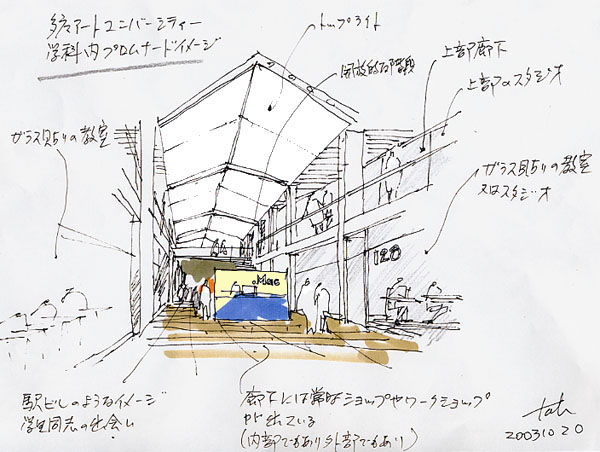 多摩アートユニバーシティー
学科内プロムナードイメージ
トップライト
開放的な階段
上部廊下
上部のスタジオ
ガラス貼りの教室
ガラス貼りの教室
又はスタジオ
120
駅ビルのようなイメージ
学生同志の出会い
廊下には常時ショップやワークショップ
が出ている
(内部でもあり外部でもあり)
20031020